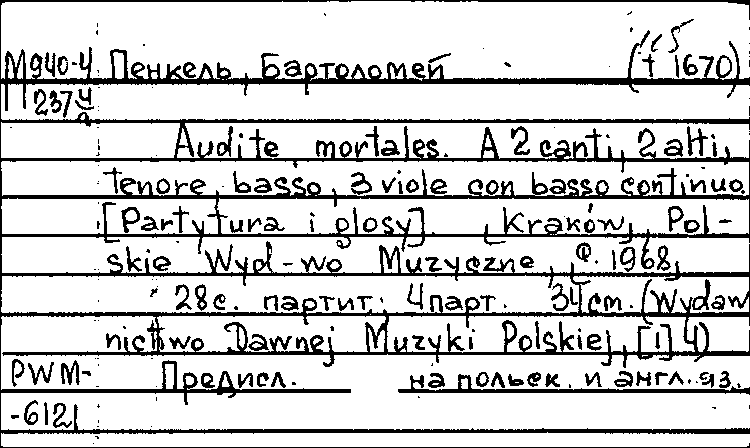 М940-4 Пенкель, Бартоломей († 1670)
237
Audite mortales. A 2 canti, 2 alti,
tenore, basso, 3 viole con basso continuo.
[Partytura i głosy]. [Kraków], Pol-
skie Wyd-wo Muzyczne, [℗. 1968]
28с. партит; 4парт. 34cm. (Wydaw
nictwo Dawnej Muzyki Polskiej, [1] 4)
PWM- Предисл. на польск. и англ. яз.
-6121